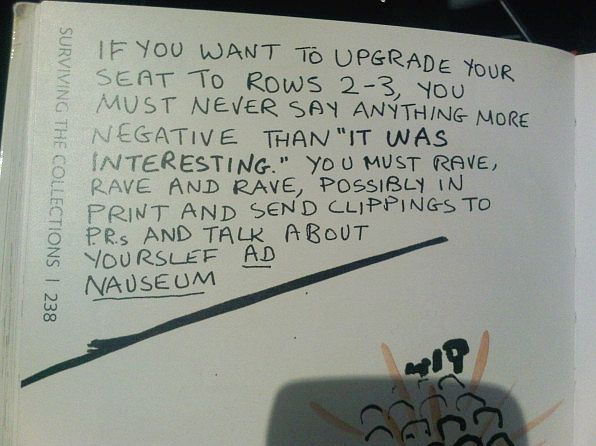 IF YOU WANT TO UPGRADE YOUR
SEAT TO ROWS 2-3, YOU
MUST NEVER SAY ANYTHING MORE
NEGATIVE THAN "IT WAS
INTERESTING." YOU MUST RAVE,
RAVE AND RAVE, POSSIBLY IN
PRINT AND SEND CLIPPINGS TO
P.R.s AND TALK ABOUT
YOURSLEF AD
NAUSEUM
SURVIVING THE COLLECTIONS | 238